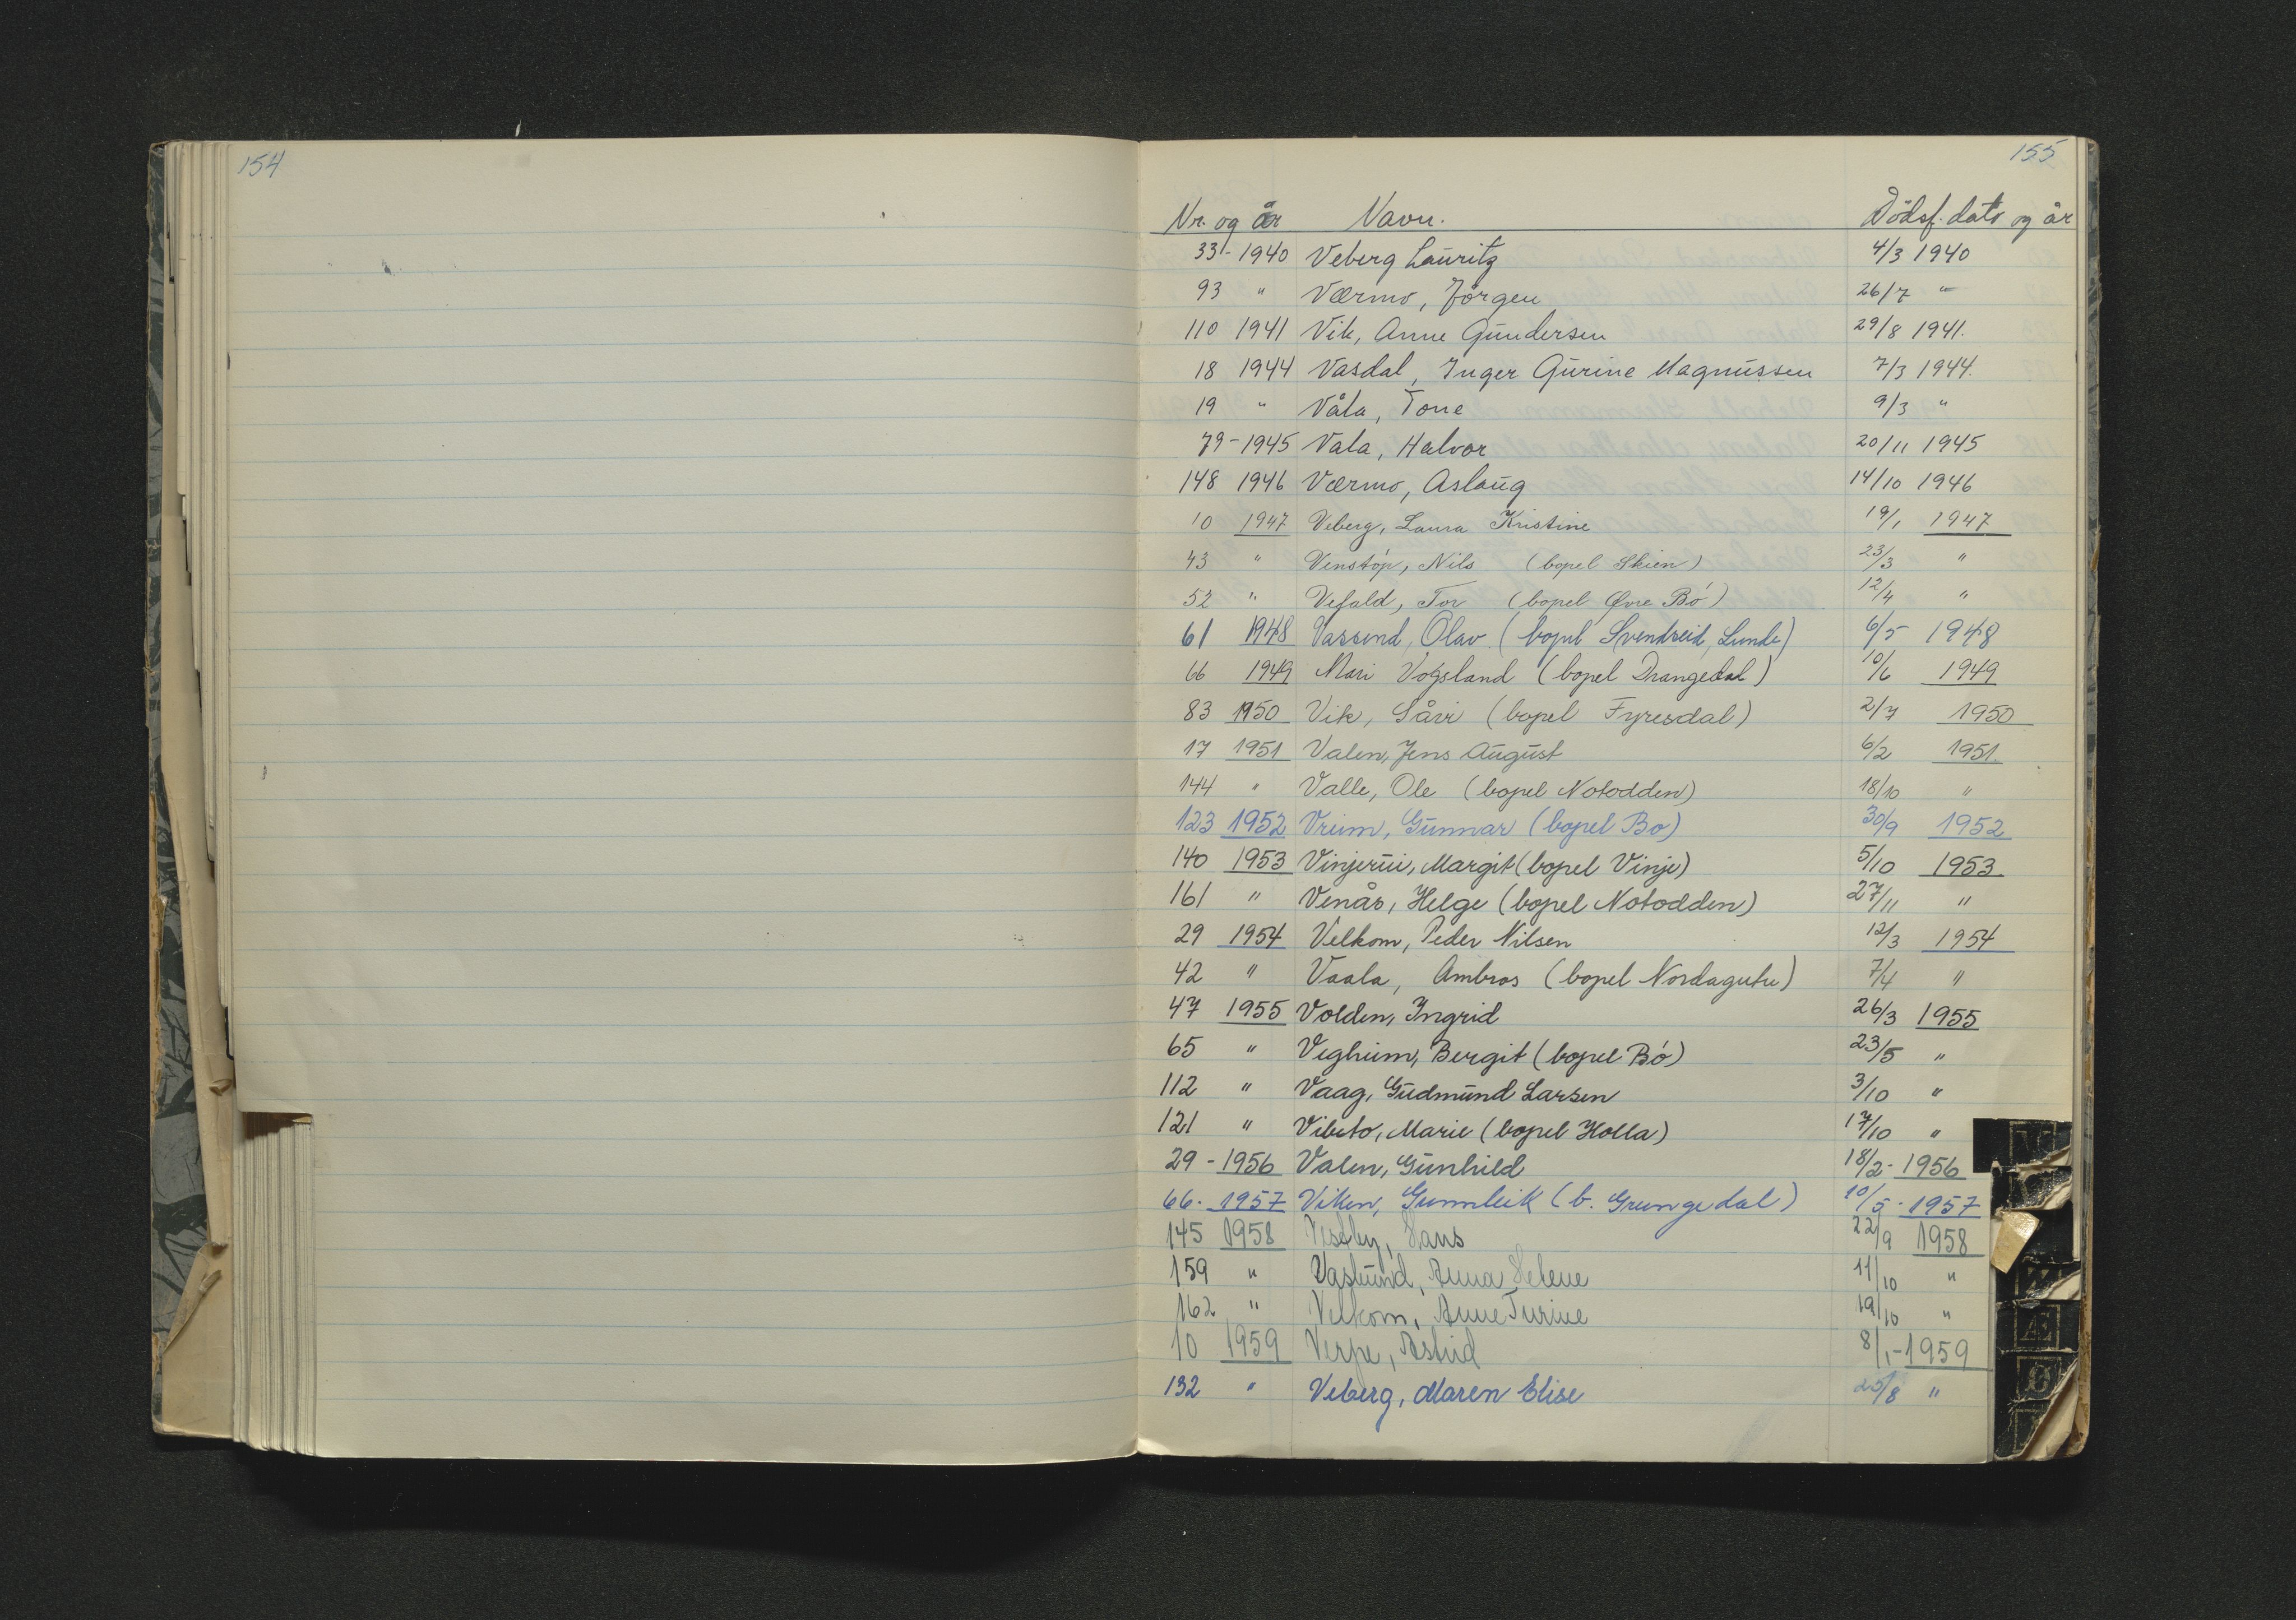 154
155
Nr. og år Navn. Dödsf. dato og år
33 - 1940 Veberg Lauritz 4/3 1940
93 " Værmo, Jörgen 26/7 "
110 1941 Vik, Anne Gundersen 29/8 1941.
18 1944 Vasdal, Inger Gurine Magnussen 7/3 1944.
19 " Våla, Tone 9/3 "
79 - 1945 Vala, Halvor 20/11 1945
148 1946 Værmo, Aslaug 14/10 1946
10 1947 Veberg, Laura Kristine 19/1 1947
43 " Venstöp, Nils (bopel Skien) 23/3 "
52 " Vefald, Tor (bopel Øvre Bö) 12/4 "
61 1948 Vassend, Olav. (bopel Svendseid, Lunde) 6/5 1948
66 1949 Mari Vogsland (bopel Drangedal) 10/6 1949
83 1950 Vik, Såvi (bopel Fyresdal) 2/7 1950
17 1951 Valen, Jens August 6/2 1951.
144 " Valle, Ole (bopel Notodden) 18/10 "
123 1952 Vreim, Gunnar (bopel Bo) 30/9 1952
140 1953 Vinjerui, Margit (bopel Vinje) 5/10 1953
161 " Venås, Helge (bopel Notodden) 27/11 "
29 1954 Velkom, Peder Nilsen 12/3 1954
42 " Vaala, Ambros (bopel Nordagutu) 7/4 "
47 1955 Volden, Ingrid 26/3 1955
65 " Veghum, Bergit (bopel Bö) 23/5 "
112 " Vaag, Gudmund Larsen 3/10 "
121 " Vibeto, Marie (bopel Holla) 17/10 "
29 - 1956 Valen, Gunhild 18/2 - 1956
66 - 1957 Viken, Gunnleik (b. Grungedal) 10/5 - 1957
145 1958 Vestby, Hans 22/9 1958
159 " Vaslund, Anna Helene 11/10 "
162 " Velkom, Anne Turine 19/10 "
10 1959 Verpe, Astrid 8/1 - 1959
132 " Veberg, Maren Elise 25/8 "
Æ
Ø